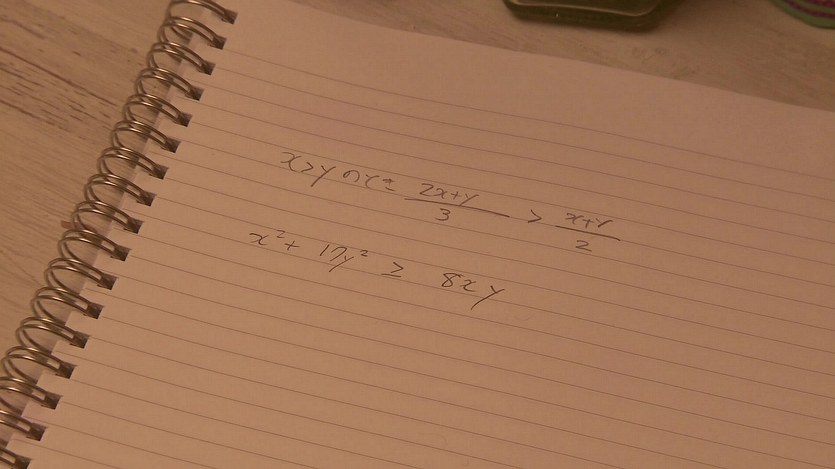 x>yのとき \frac{2x+y}{3} > \frac{x+y}{2}
x²+ 17y² ≥ 8xy